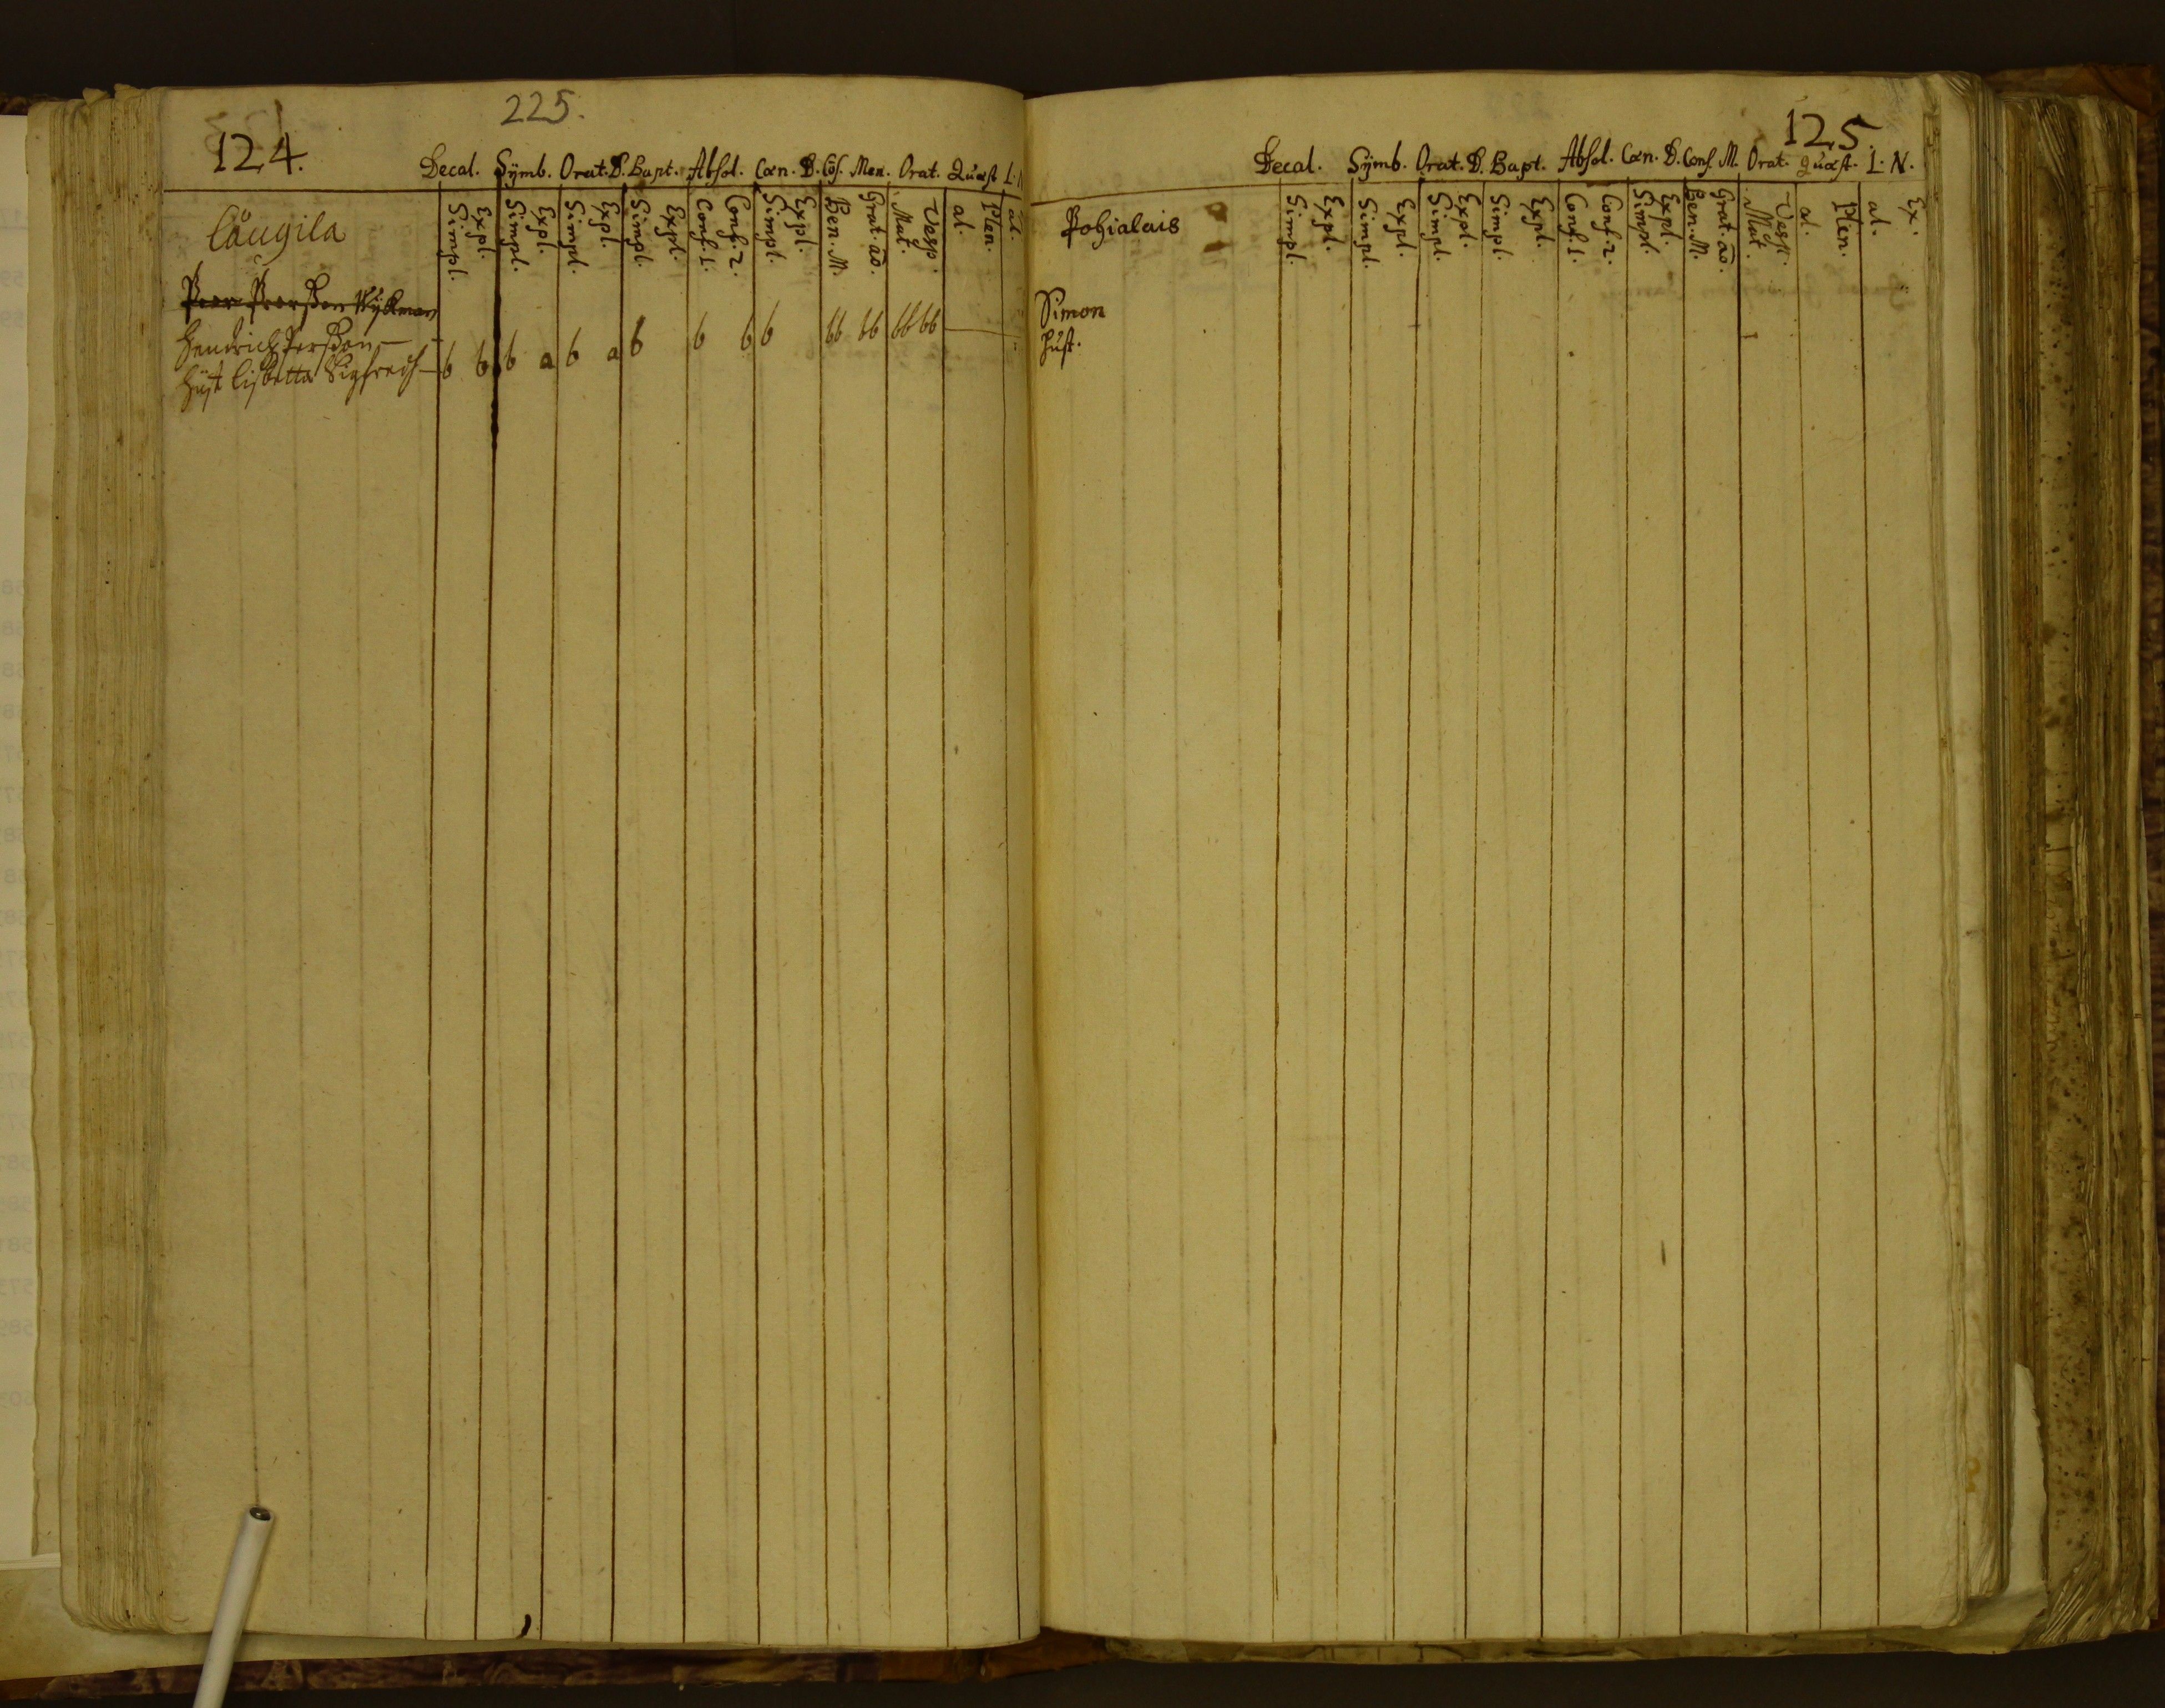 225.
124.
Decal. Symb. Orat. D. Bapt. Absol. Cœn. D. Cōf. Men. Orat. Quæst I. N
Låugila
Simpl. Expl. Simpl. Expl. Simpl. Expl. Simpl. Expl. Conf. 1. Conf. 2. Simpl. Expl. Ben. M. Grat. aō. Mat. Vesp. al. Plen. al.
Peer Peersson Nykman
Hendrich Persson
Hust Lisbetta Sigfredz b b b a b a b b b b bb bb bb bb
125.
Decal. Symb. Orat. D. Bapt. Absol. Cœn. D. Conf. M. Orat. Quæst. I. N.
Pohialais
Simpl. Expl. Simpl. Expl. Simpl. Expl. Simpl. Expl. Conf. 1. Conf. 2. Simpl. Expl. Ben. M. Grat. aō. Mat. Vesp. al. Plen. al. Ex.
Simon
Hust.